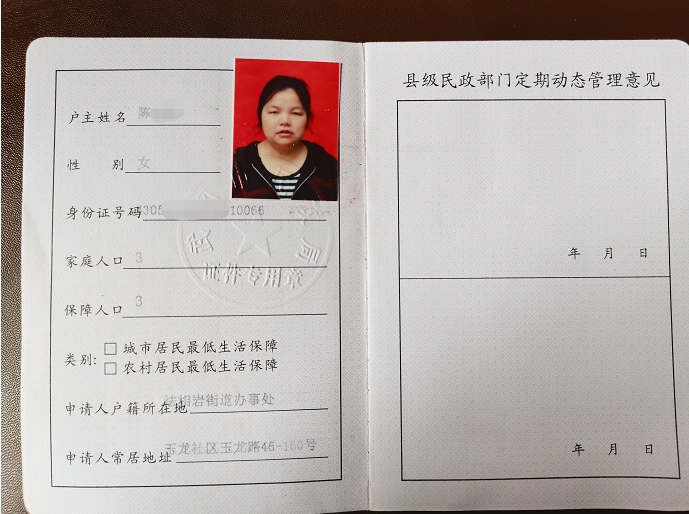 户主姓名 陈
性 别 女
身份证号码 4305 10066
家庭人口 3
保障人口 3
类别: □ 城市居民最低生活保障
□ 农村居民最低生活保障
申请人户籍所在地 法相岩街道办事处
申请人常居地址 玉龙社区玉龙路46-160号
证件专用章
县级民政部门定期动态管理意见
年 月 日
年 月 日